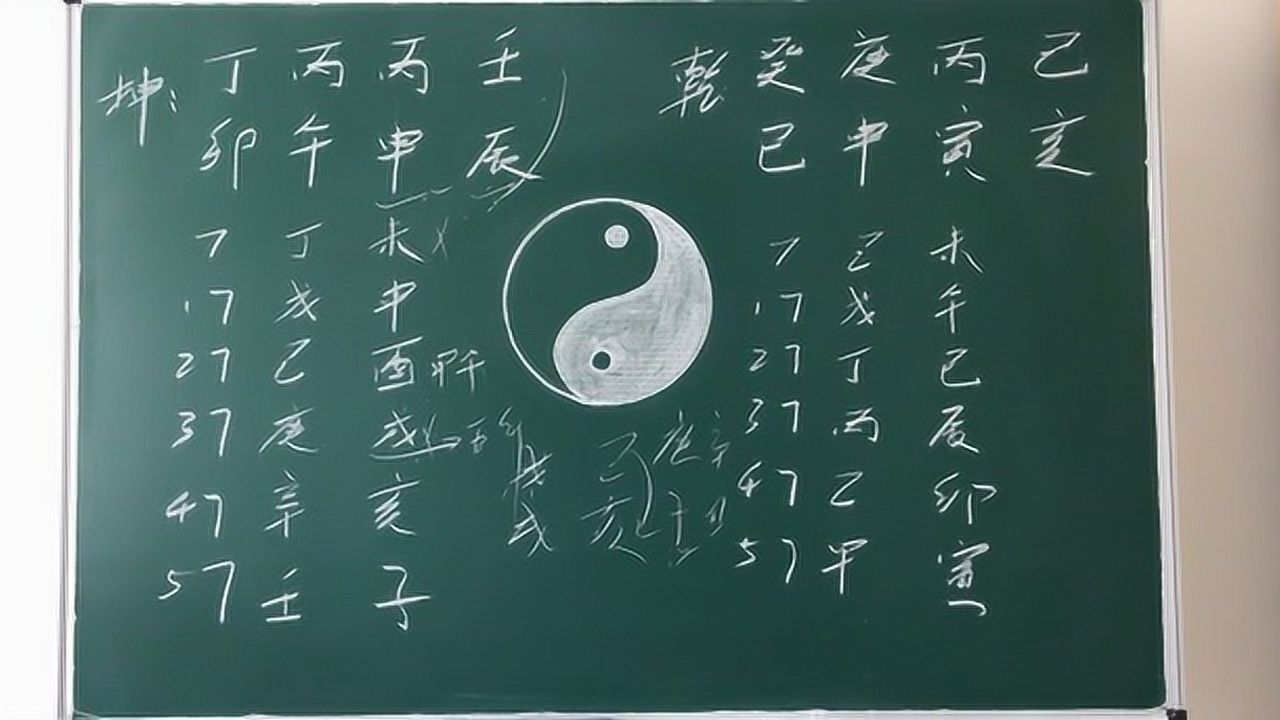 坤: 丁 丙 丙 壬
卯 午 申 辰
7 丁 未
17 戊 申
27 己 酉
37 庚 戌
47 辛 亥
57 壬 子
戊 己 庚 辛
戌 亥 子
乾 癸 庚 丙 己
巳 申 寅 亥
7 己 未
17 戊 午
27 丁 巳
37 丙 辰
47 乙 卯
57 甲 寅